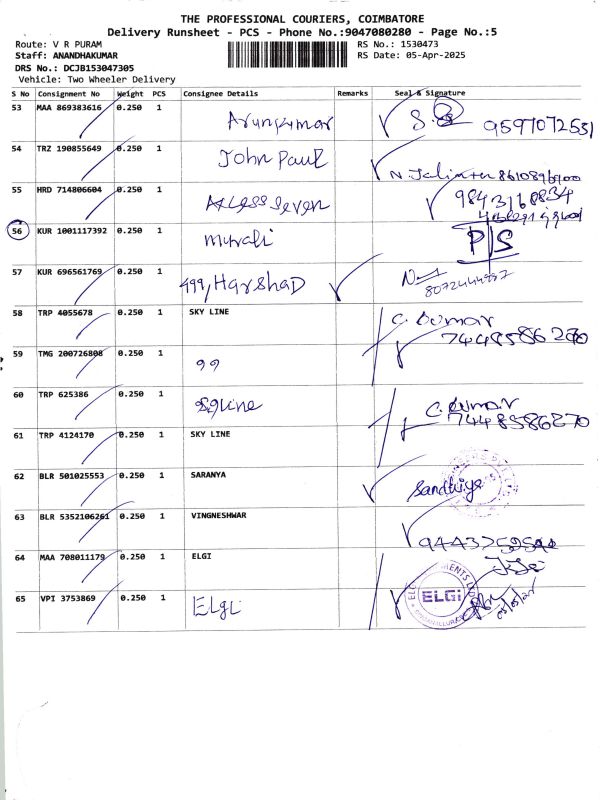 THE PROFESSIONAL COURIERS, COIMBATORE
Delivery Runsheet - PCS - Phone No.:9047080280 - Page No.:5
Route: V R PURAM
RS No.: 1530473
Staff: ANANDHAKUMAR
RS Date: 05-Apr-2025
DRS No.: DCJB153047305
Vehicle: Two Wheeler Delivery
S No Consignment No Weight PCS Consignee Details Remarks Seal & Signature
53 MAA 869383616 0.250 1 Arunkumar 9597072551
54 TRZ 190855649 0.250 1 John Paul 8610896900
55 HRD 714806604 0.250 1 Access seven 9843168834
56 KUR 1001117392 0.250 1 Murali P/S
57 KUR 696561769 0.250 1 499, Harshad 8072444992
58 TRP 4055678 0.250 1 SKY LINE C. Kumar
7448586270
59 TMG 200726808 0.250 1 99
60 TRP 625386 0.250 1 C. Kumar
7448586270
61 TRP 4124170 0.250 1 SKY LINE
62 BLR 501025553 0.250 1 SARANYA Sandhiya
63 BLR 5352106261 0.250 1 VINGNESHWAR
64 MAA 708011179 0.250 1 ELGI
65 VPI 3753869 0.250 1 Elgi ELGi